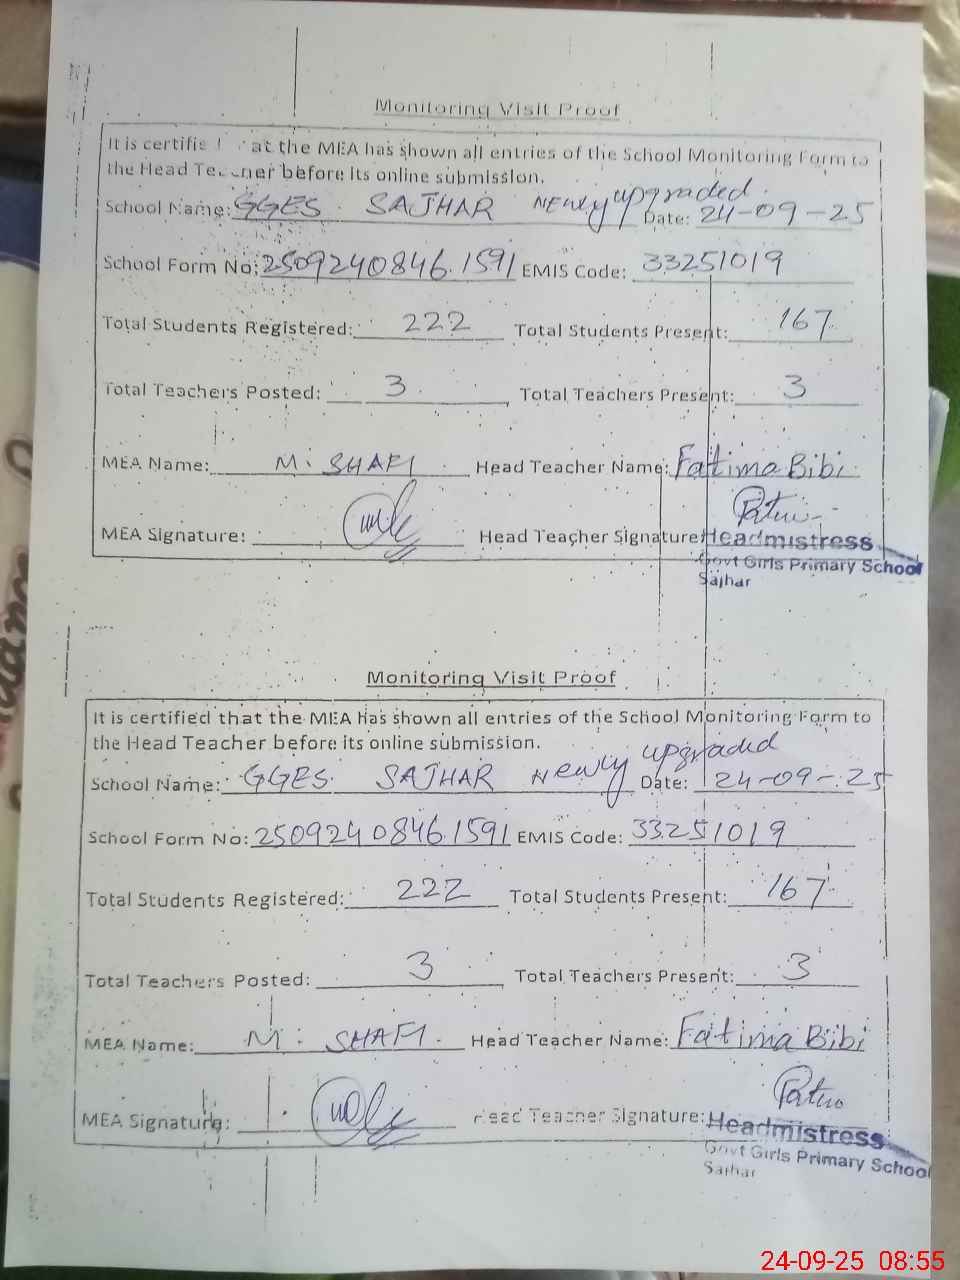 Monitoring Visit Proof
It is certified that the MEA has shown all entries of the School Monitoring Form to
the Head Teacher before its online submission.
School Name: GGES SAJHAR Newly upgraded Date: 24-09-25
School Form No: 2509240846.1591 EMIS Code: 33251019
Total Students Registered: 222 Total Students Present: 167
Total Teachers Posted: 3 Total Teachers Present: 3
MEA Name: M. SHAFI Head Teacher Name: Fatima Bibi
MEA Signature: Head Teacher Signature:
Headmistress
Govt Girls Primary School
Sajhar
Monitoring Visit Proof
It is certified that the MEA has shown all entries of the School Monitoring Form to
the Head Teacher before its online submission.
School Name: GGES SAJHAR Newly upgraded Date: 24-09-25
School Form No: 2509240846.1591 EMIS Code: 33251019
Total Students Registered: 222 Total Students Present: 167
Total Teachers Posted: 3 Total Teachers Present: 3
MEA Name: M. SHAFI. Head Teacher Name: Fatima Bibi
MEA Signature: Head Teacher Signature:
Headmistress
Govt Girls Primary School
Sajhar
24-09-25 08:55